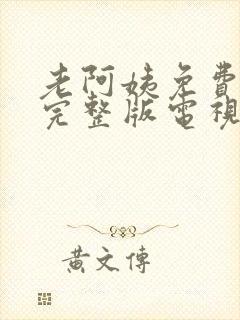 老阿姨免費
完整版電視
黃文傳